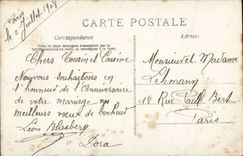 Paris
le 2 Juillet 1908
CARTE POSTALE
Correspondance
Adresse
Chers Cousin et Cousine
Nous vous souhaitons en
l'honneur de l'Anniversaire
de votre mariage nos
meilleurs vœux de bonheur
Léon Blasberg
Dora
Monsieur et Madame
Lehmann
18 Rue Paul Bert
Paris